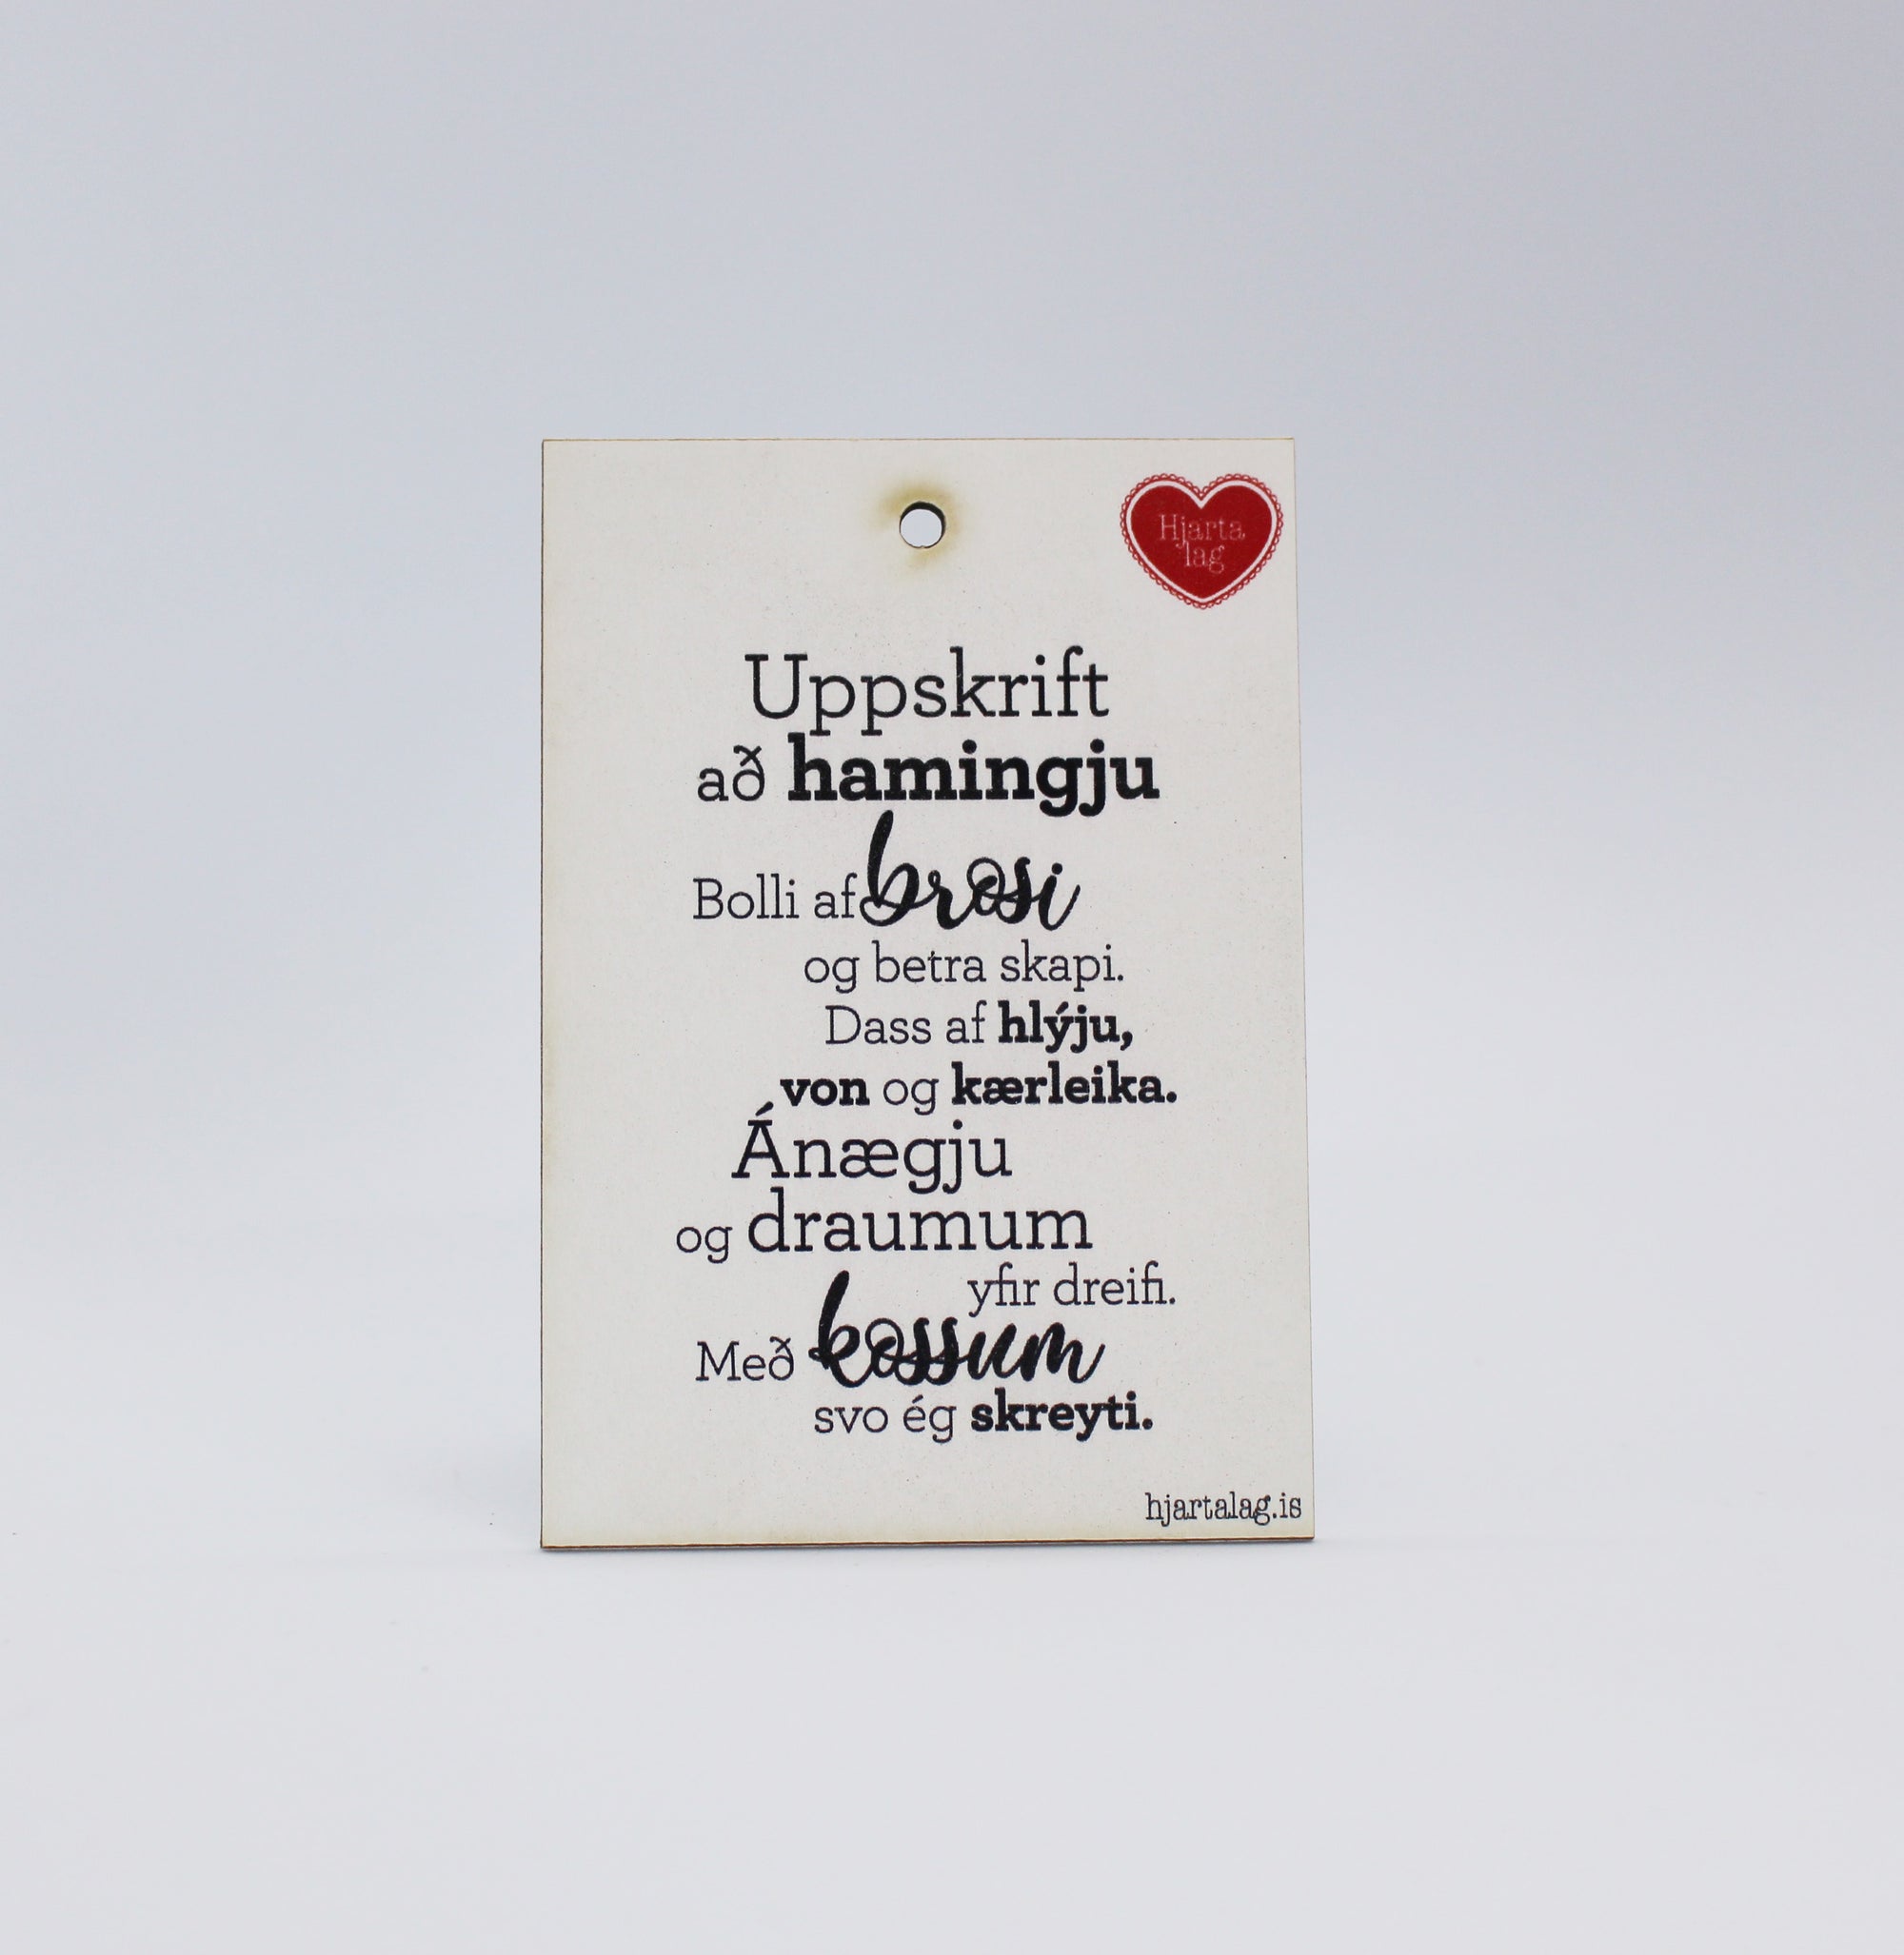 Hjarta
lag
Uppskrift
að hamingju
Bolli af brosi
og betra skapi.
Dass af hlýju,
von og kærleika.
Ánægju
og draumum
yfir dreifi.
Með kossum
svo ég skreyti.
hjartalag.is